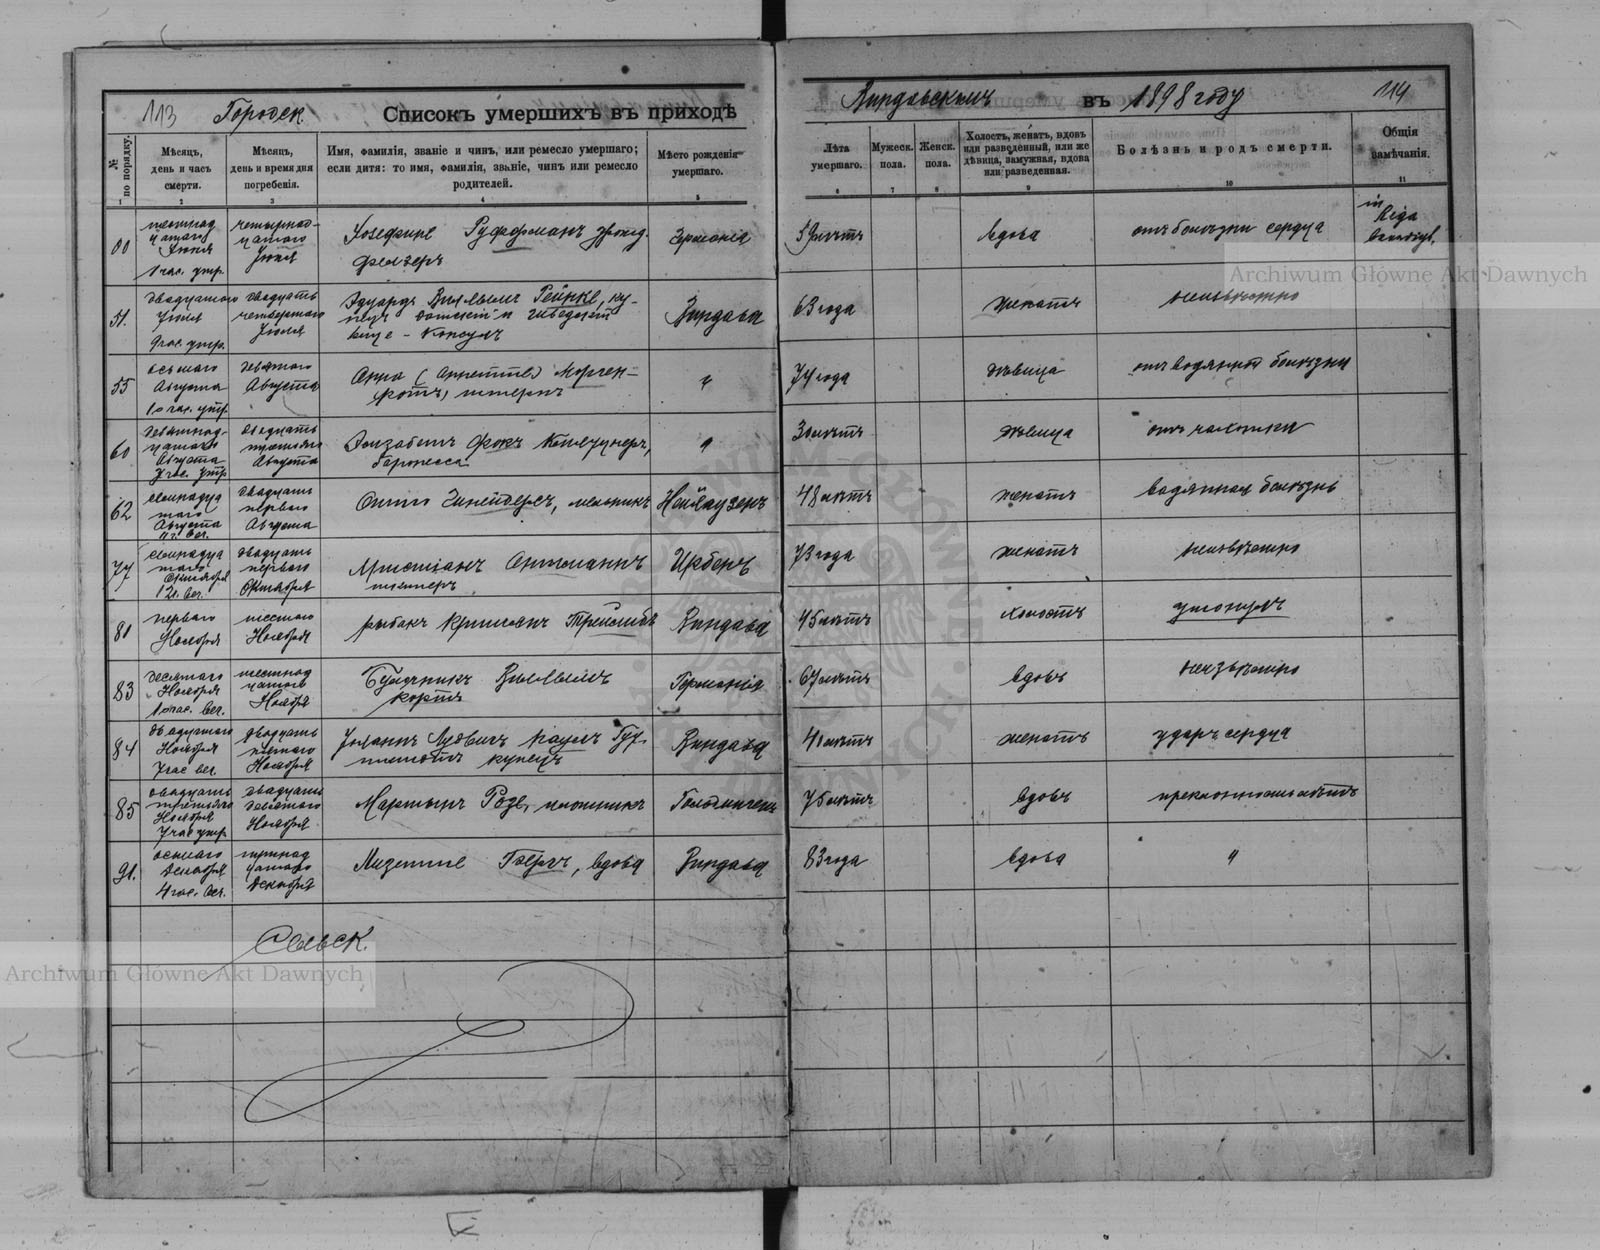 113 Городск Списокъ умершихъ въ приходѣ
Виндавскомъ въ 1898 году 114
№ по порядку.
Мѣсяцъ, день и часъ смерти.
Мѣсяцъ, день и время дня погребенія.
Имя, фамилія, званіе и чинъ, или ремесло умершаго; если дитя: то имя, фамилія, званіе, чинъ или ремесло родителей.
Мѣсто рожденія умершаго.
Лѣта умершаго.
Мужеск. пола.
Женск. пола.
Холостъ, женатъ, вдовъ или разведенный, или же дѣвица, замужняя, вдова или разведенная.
Болѣзнь и родъ смерти.
Общія замѣчанія.
1 2 3 4 5 6 7 8 9 10 11
Іюня
1 час. утр.
Іюня
Германія
59 лѣтъ
вдова
отъ болѣзни сердца
in Riga beerdigt.
51.
двадцатаго
Іюля
9 час. утр.
двадцать
четвертаго
Іюля
Эдуардъ Вильгельмъ Рейнке, ку-
пецъ датскій и шведскій
вице-консулъ
Виндава
63 года
женатъ
неизвѣстно
55
осьмаго
Августа
10 час. утр.
девятаго
Августа
Анна (Аннетте) Морген-
ротъ,
"
74 года
дѣвица
отъ водяной болѣзни
60
девятнад-
цатаго
Августа
7 час. утр.
двадцать
третьяго
Августа
Элизабетъ фонъ
баронесса
"
30 лѣтъ
дѣвица
отъ чахотки
62
Августа
двадцать
перваго
Августа
Отто Шнейдеръ, мельникъ
Нейгаузенъ
48 лѣтъ
женатъ
водянная болѣзнь
77
Октября
двадцать
перваго
Октября
Христіанъ
Ирбенъ
73 года
женатъ
неизвѣстно
81
перваго
Ноября
шестаго
Ноября
рыбакъ
Виндава
45 лѣтъ
холостъ
утонулъ
83
десятаго
Ноября
10 час. веч.
шестнад
цатаго
Ноября
Булочникъ Вильгельмъ
Кортъ
Германія
67 лѣтъ
вдовъ
неизвѣстно
84
двадцатаго
Ноября
7 час веч.
двадцать
пятаго
Ноября
Іоганнъ Лудвигъ Пауль Гут-
купецъ
Виндава
40 лѣтъ
женатъ
ударъ сердца
85
двадцать
третьяго
Ноября
7 час утр.
двадцать
девятаго
Ноября
Мартынъ Розе, плотникъ
Гольдингенъ
75 лѣтъ
вдовъ
91.
осьмаго
Декабря
4 час. веч.
тринад
цатаго
Декабря
Лизетте Гергъ, вдова
Виндава
83 года
вдова
"
Сельск.
Archiwum Główne Akt Dawnych
Archiwum Główne Akt Dawnych